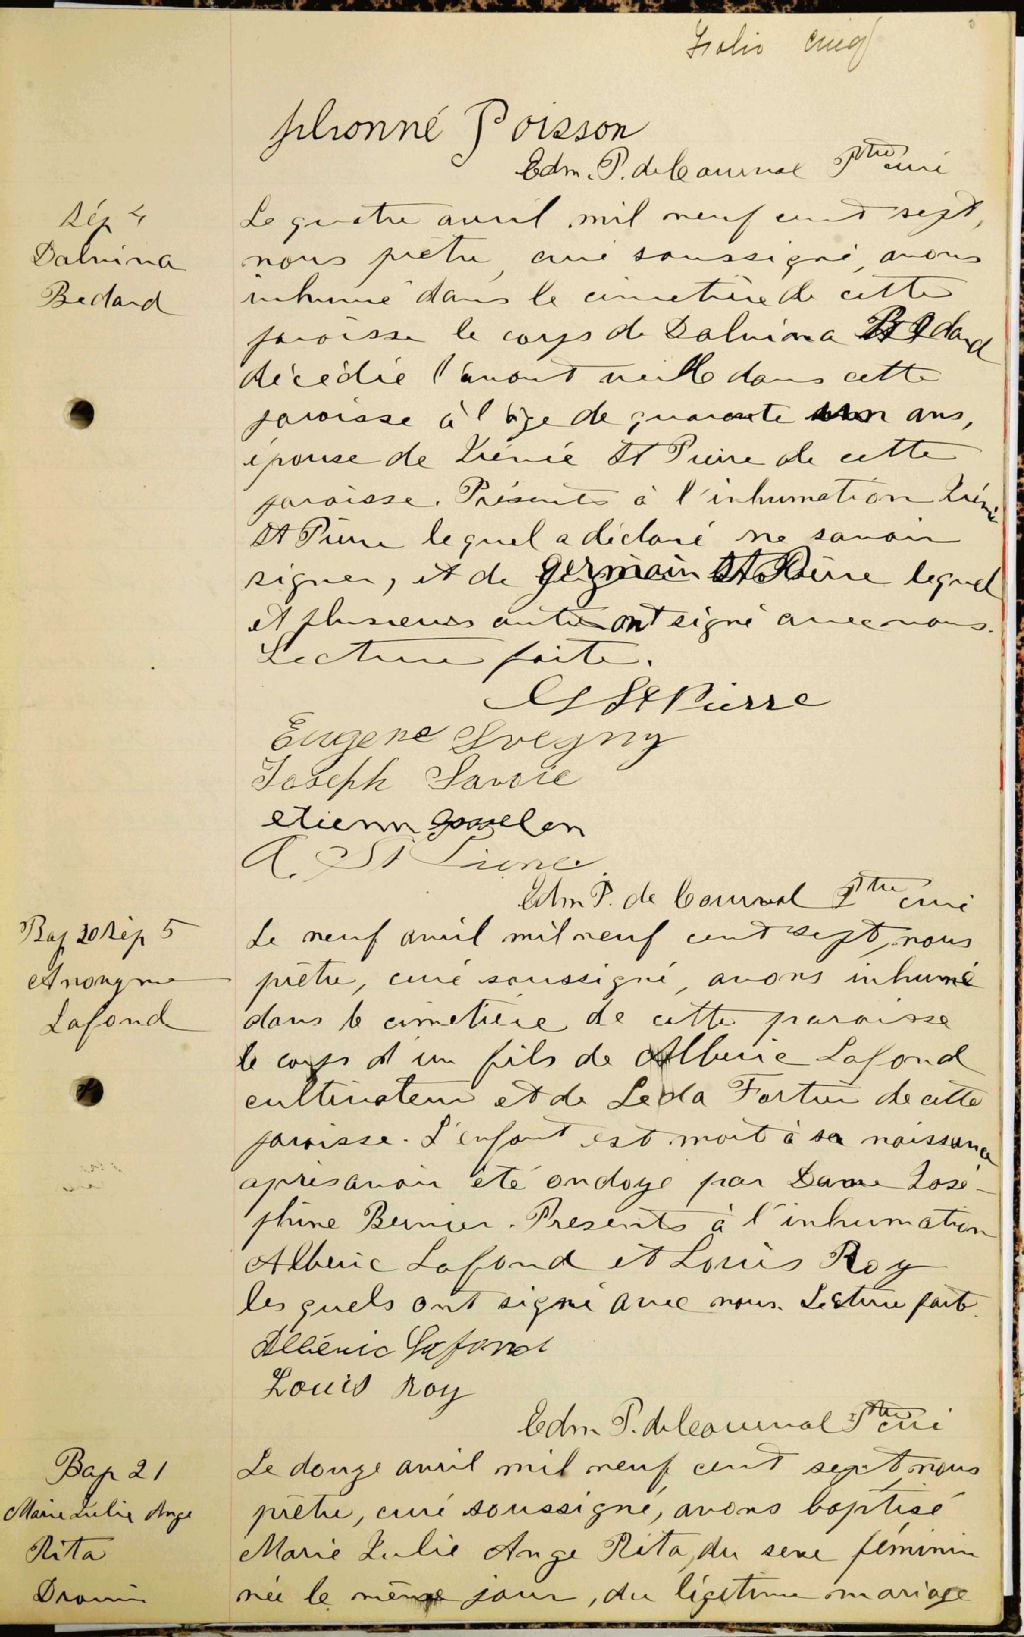 Folio cinq
Poisson
Edm. P. de Courval Ptre curé
Sép 4
Dalvina
Bedard
Le quatre avril mil neuf cent sept,
nous prêtre, curé soussigné, avons
inhumé dans le cimetière de cette
paroisse le corps de Dalvina Bedard
décédée l'avant veille dans cette
paroisse à l'âge de quarante ans,
épouse de Irénée St Pierre de cette
paroisse. Présents à l'inhumation Irénée
St Pierre lequel a déclaré ne savoir
signer, et de Germain St Pierre lequel
et plusieurs autres ont signé avec nous.
Lecture faite.
G St Pierre
Eugene
Joseph Savoie
etienn
A. St Pierre
Edm P. de Courval Ptre curé
Bap 20 Sép 5
Anonyme
Lafond
Le neuf avril mil neuf cent sept, nous
prêtre, curé soussigné, avons inhumé
dans le cimetière de cette paroisse
le corps d'un fils de Alberic Lafond
cultivateur et de Leda Fortier de cette
paroisse. L'enfant est mort à sa naissance
après avoir été ondoyé par Dame José-
phine Bernier. Presents à l'inhumation
Alberic Lafond et Louis Roy
lesquels ont signé avec nous. Lecture faite.
Albéric Lafond
Louis Roy
Edm P. de Courval Ptre curé
Bap 21
Marie Julie Ange
Rita
Drouin
Le douze avril mil neuf cent sept, nous
prêtre, curé soussigné, avons baptisé
Marie Julie Ange Rita, du sexe féminin
née le même jour, du légitime mariage